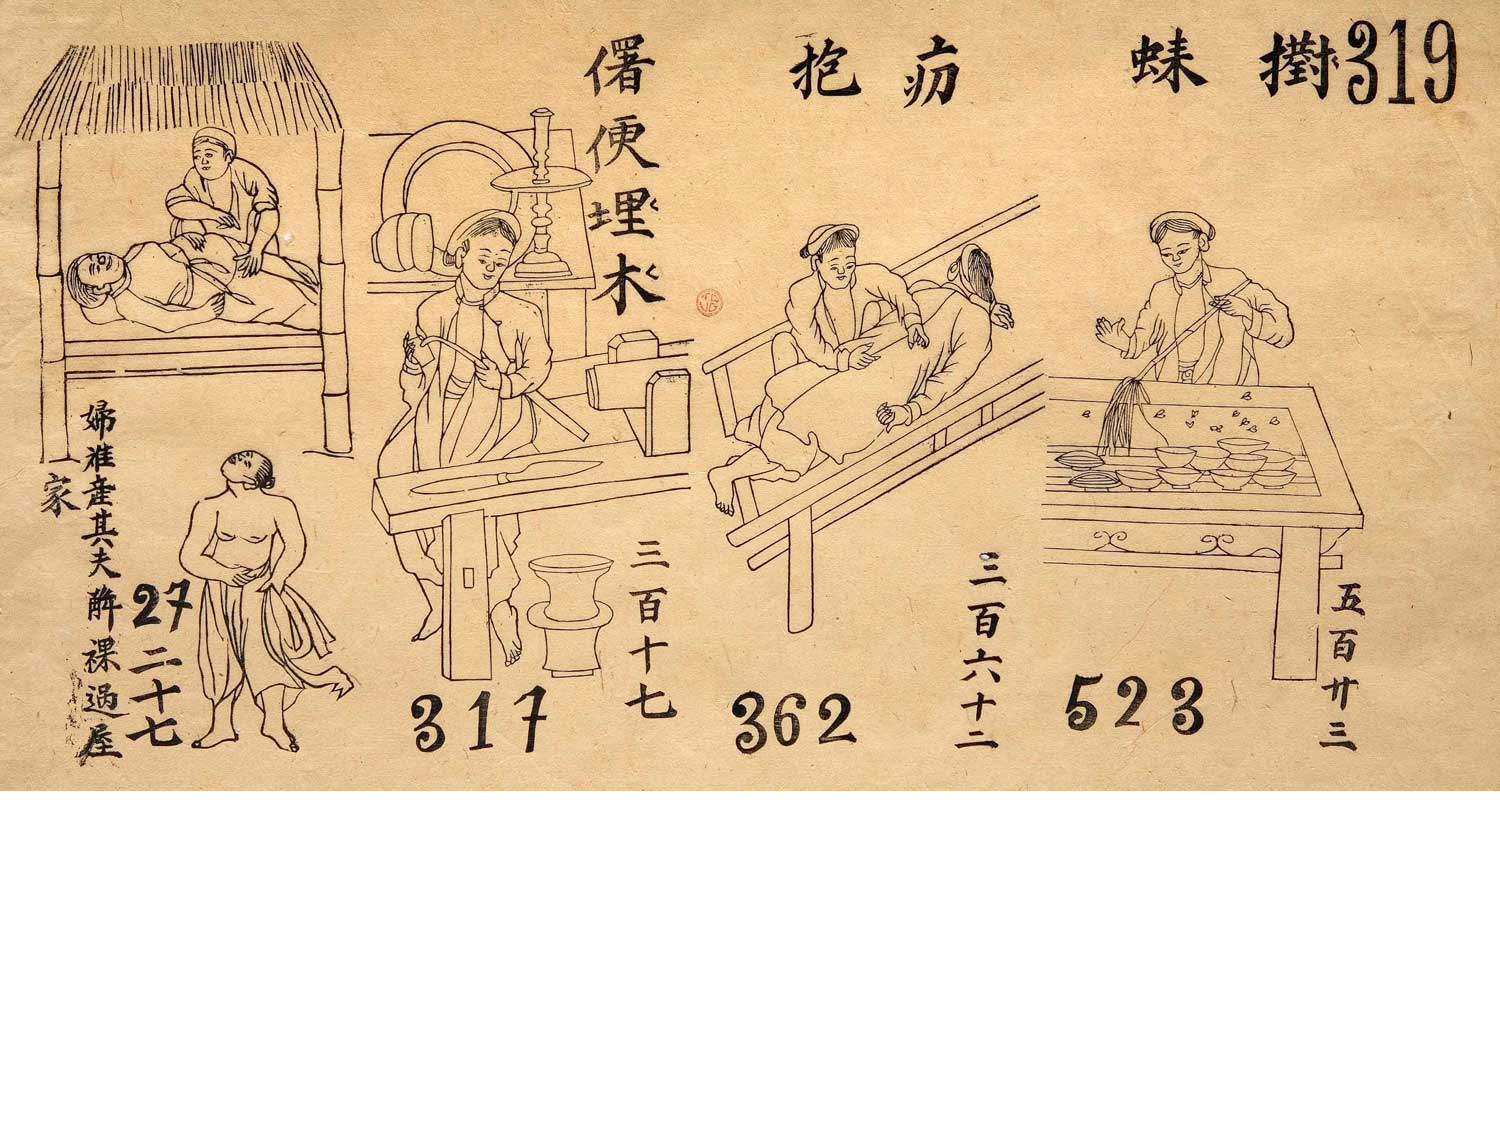 319
𢷮
抱
𠏲便埋木
五百廿三
523
三百六十二
362
三百十七
317
二十七
27
婦难產其夫裸過屋
家